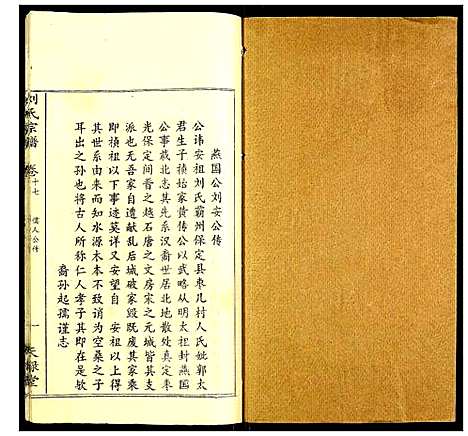 燕国公刘安公传
公讳安祖刘氏霸州保定县枣儿村人氏妣郭太
君生子祯始家黄传公以武略从太祖封燕国
公事蔵北志其先系汉裔世居北地散处真定枣
光保定间晋之越石唐之文房宋之元城皆其支
派也无吾家自遗献乱后城破家毁既废其家乘
即祯祖以下事迹莫详又安望自 安祖以上得
其世系由来而知水源木本不致诮为空桑之子
耳出之孙也将古人所称仁人孝子其即在是欤
裔孙起孺谨志
刘氏宗谱
卷十七
儒人公传
一
天禄堂